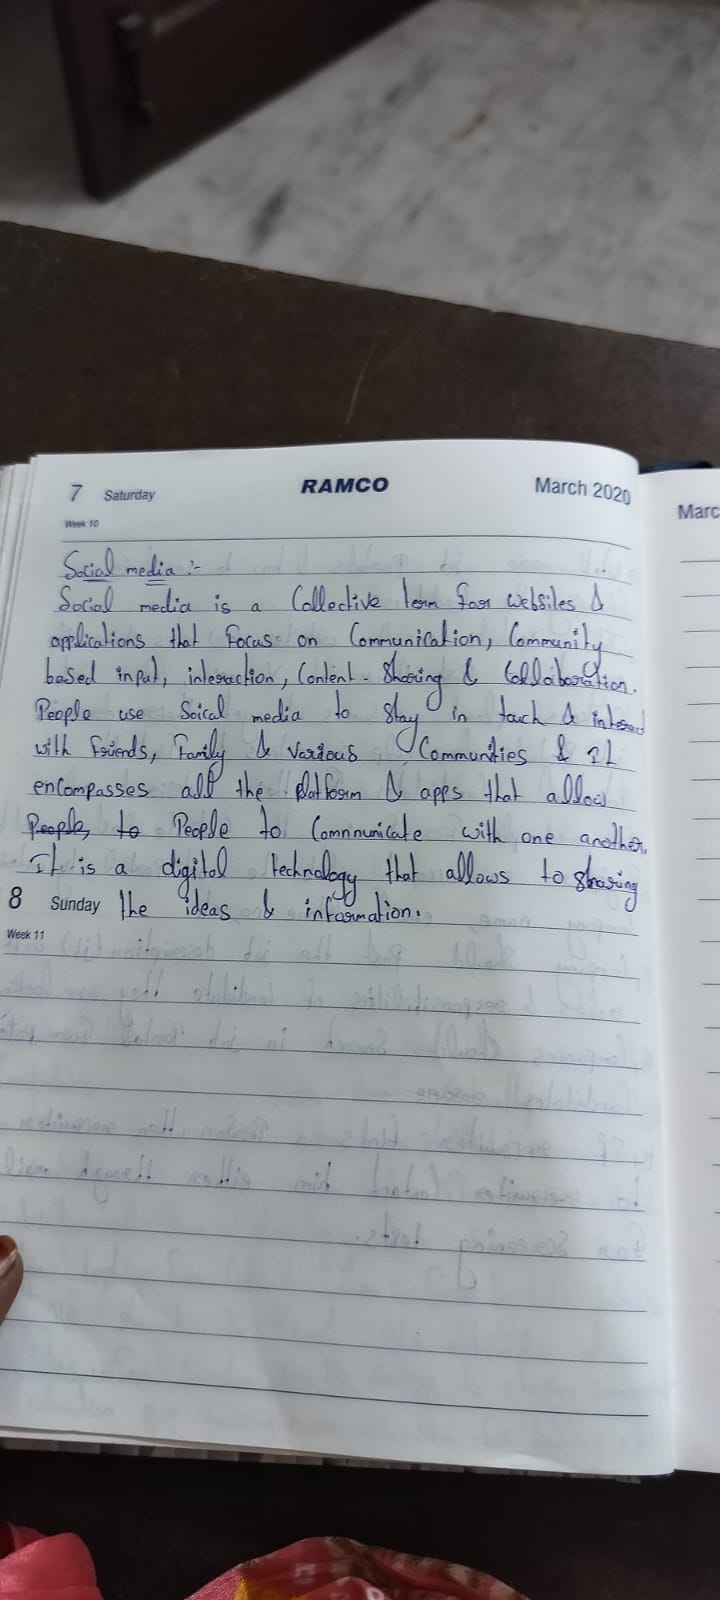 7 Saturday RAMCO March 2020
Week 10
Marc
Social media :-
Social media is a Collective term for websites &
applications that Focus on Communication, Community
based input, interaction, Content - Sharing & Collaboration.
People use Soical media to stay in touch & interact
with Friends, Family & various Communities & It
encompasses all the platform & apps that allow
People, to People to Commnunicate with one another.
It is a digital technology that allows to sharing
8 Sunday the ideas & information.
Week 11